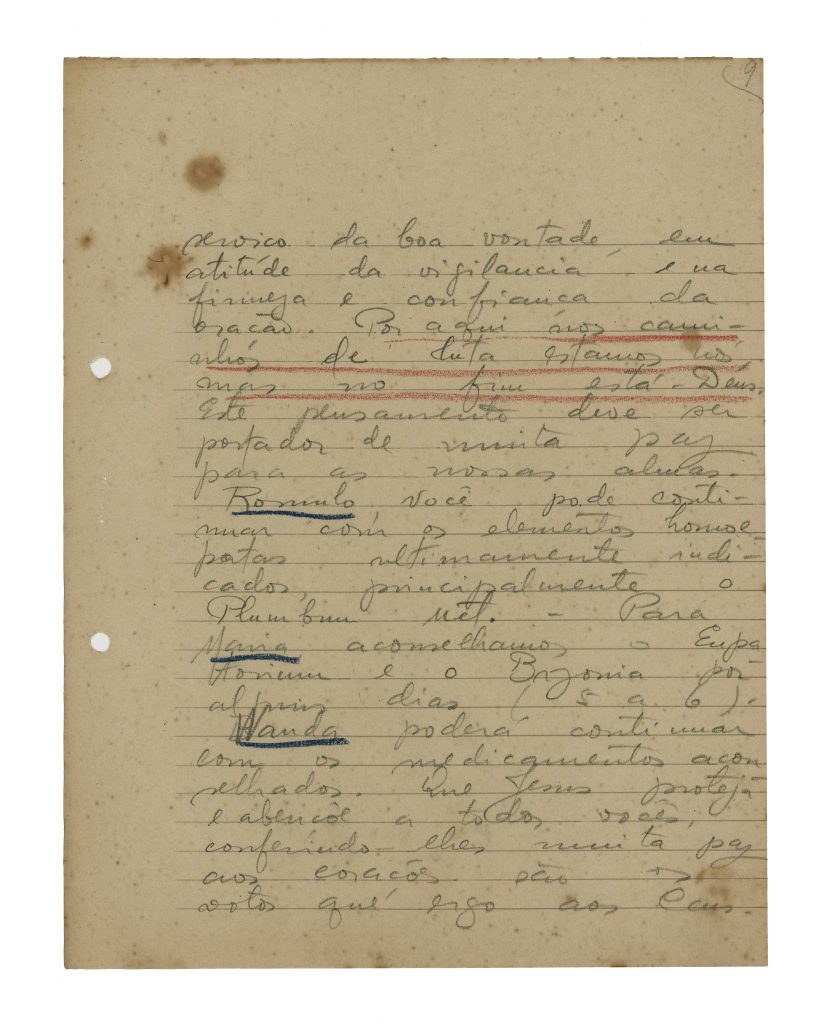 9
serviço da boa vontade, em
atitúde da vigilancia e na
firmeza e confiança da
oração. Por aqui nos cami-
nhos de luta estamos nós
mas no fim está - Deus.
Este pensamento deve ser
portador de muita paz
para as nossas almas.
Romulo, você pode conti-
nuar com os elementos homoe-
patas ultimamente indi-
cados, principalmente o
Plumbum Met. - Para
Maria aconselhamos o Eupa
torium e o Bryonia por
alguns dias (5 a 6).
Wanda poderá continuar
com os medicamentos acon
selhados. Que Jesus proteja
e abençôe a todos vocês,
conferindo-lhes muita paz
aos corações são os
votos que ergo aos Ceus.